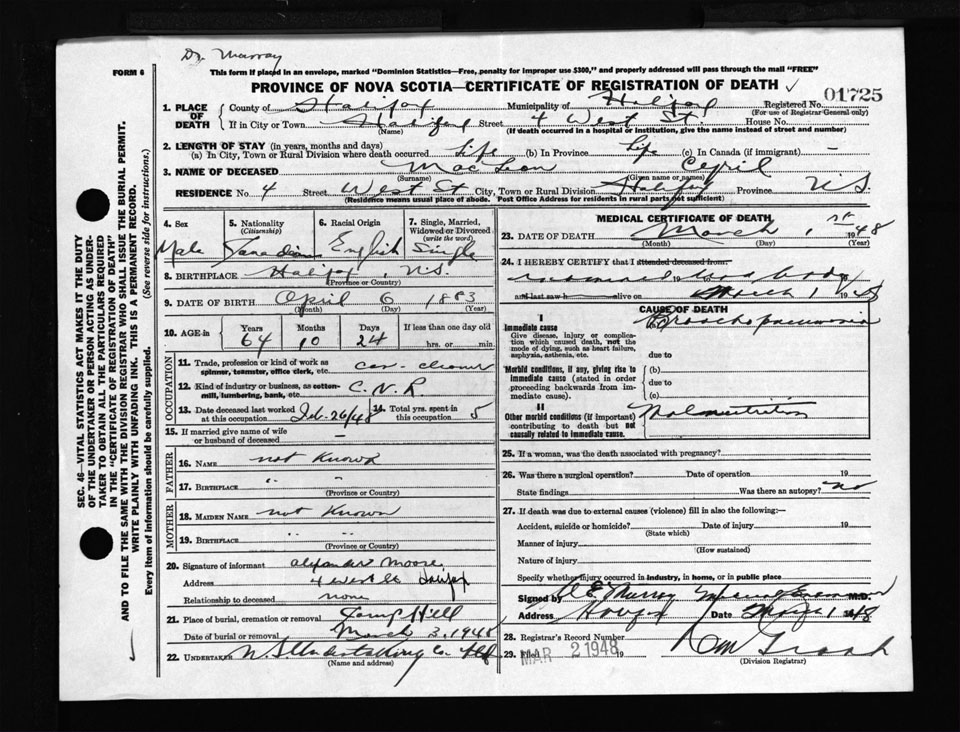 Dr. Murray
FORM 6
This form if placed in an envelope, marked "Dominion Statistics—Free, penalty for improper use $300," and properly addressed will pass through the mail "FREE"
PROVINCE OF NOVA SCOTIA—CERTIFICATE OF REGISTRATION OF DEATH ✓
01725
1. PLACE OF DEATH County of Halifax Municipality of Halifax Registered No.
(For use of Registrar-General only)
If in City or Town Halifax Street 4 West St. House No.
(Name) (If death occurred in a hospital or institution, give the name instead of street and number)
2. LENGTH OF STAY (in years, months and days)
(a) In City, Town or Rural Division where death occurred Life (b) In Province Life (c) In Canada (if immigrant) –
3. NAME OF DECEASED MacLean Cyril
(Surname) (Given name or names)
RESIDENCE No. 4 Street West St City, Town or Rural Division Halifax Province N.S.
(Residence means usual place of abode. Post Office Address for residents in rural parts not sufficient)
4. Sex 5. Nationality 6. Racial Origin 7. Single, Married,
(Citizenship) Widowed or Divorced
(write the word)
Male Canadian English Single
8. BIRTHPLACE Halifax, N.S.
(Province or Country)
9. DATE OF BIRTH April 6 1883
(Month) (Day) (Year)
10. AGE in Years Months Days If less than one day old
64 10 24 hrs. or min.
OCCUPATION
11. Trade, profession or kind of work as car cleaner
spinner, teamster, office clerk, etc.
12. Kind of industry or business, as cotton- C.N.R
mill, lumbering, bank, etc.
13. Date deceased last worked Feb. 26/48 14. Total yrs. spent in 5
at this occupation this occupation
15. If married give name of wife –
or husband of deceased
FATHER
16. NAME not known
17. BIRTHPLACE " "
(Province or Country)
MOTHER
18. MAIDEN NAME not known
19. BIRTHPLACE " "
(Province or Country)
20. Signature of informant Alexander Moore
Address 4 West St Halifax
Relationship to deceased none
21. Place of burial, cremation or removal Camp Hill
Date of burial or removal March 3, 1948
22. UNDERTAKER N.S. Undertaking Co. Hfx
(Name and address)
MEDICAL CERTIFICATE OF DEATH
23. DATE OF DEATH March 1st 1948
(Month) (Day) (Year)
24. I HEREBY CERTIFY that I attended deceased from:
19 dead body
and last saw h alive on March 1 1948
CAUSE OF DEATH
I
Immediate cause Broncho pneumonia
Give disease, injury or complication which caused death, not the mode of dying, such as heart failure, asphyxia, asthenia, etc.
due to
Morbid conditions, if any, giving rise to immediate cause (stated in order proceeding backwards from immediate cause).
(b)
due to
(c)
II
Other morbid conditions (if important) contributing to death but not causally related to immediate cause.
Malnutrition
25. If a woman, was the death associated with pregnancy?
26. Was there a surgical operation? Date of operation 19
State findings Was there an autopsy? no
27. If death was due to external causes (violence) fill in also the following:—
Accident, suicide or homicide? Date of injury 19
(State which)
Manner of injury
(How sustained)
Nature of injury
Specify whether injury occurred in industry, in home, or in public place
Signed by E. Murray Medical Examiner M.D.
Address Halifax Date March 1 1948
28. Registrar's Record Number
29. Filed MAR 2 1948 19
(Division Registrar)
SEC. 46—VITAL STATISTICS ACT MAKES IT THE DUTY
OF THE UNDERTAKER OR PERSON ACTING AS UNDER-
TAKER TO OBTAIN ALL THE PARTICULARS REQUIRED
IN THE "CERTIFICATE OF REGISTRATION OF DEATH"
AND TO FILE THE SAME WITH THE DIVISION REGISTRAR WHO SHALL ISSUE THE BURIAL PERMIT.
WRITE PLAINLY WITH UNFADING INK. THIS IS A PERMANENT RECORD.
Every item of information should be carefully supplied. (See reverse side for instructions.)